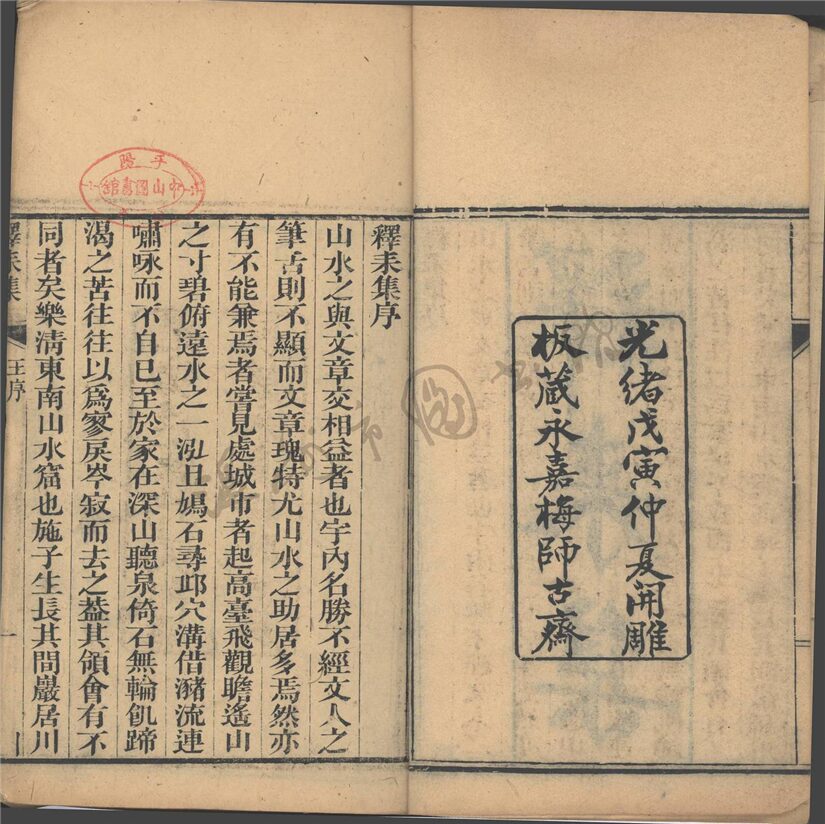 光緒戊寅仲夏開雕
板藏永嘉梅師古齋
釋耒集序
山水之與文章交相益者也宇內名勝不經文人之
筆舌則不顯而文章瑰特尤山水之助居多焉然亦
有不能兼焉者嘗見處城市者起高臺飛觀瞻遙山
之寸碧俯遠水之一泓且媯石尋邱穴溝借瀦流連
嘯咏而不自已至於家在深山聽泉倚石無輪飢蹄
渴之苦往往以為寥戾岑寂而去之葢其領會有不
同者矣樂清東南山水窟也施子生長其間巖居川
釋耒集
王序
一
平陽
中山圖書館